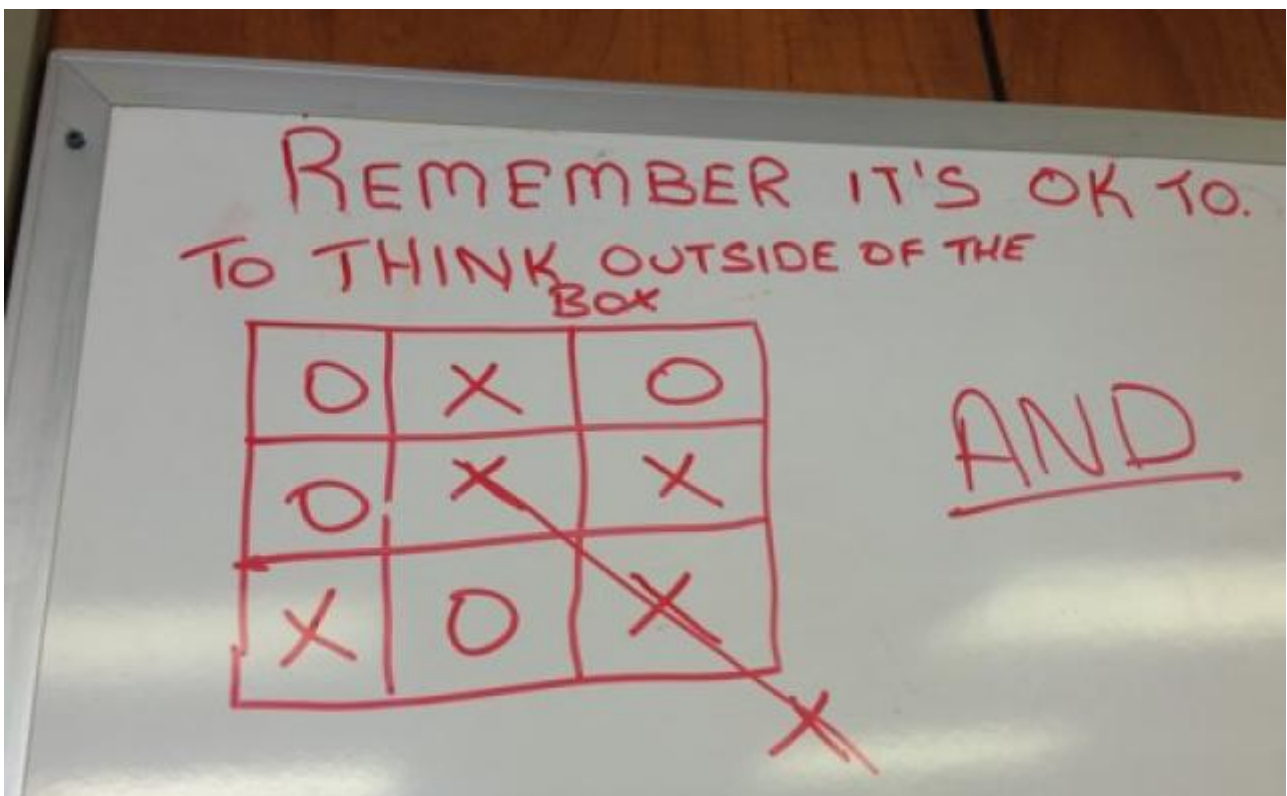 REMEMBER IT'S OK TO.
TO THINK OUTSIDE OF THE
BOX
O X O
O X X
AND
X O X
X